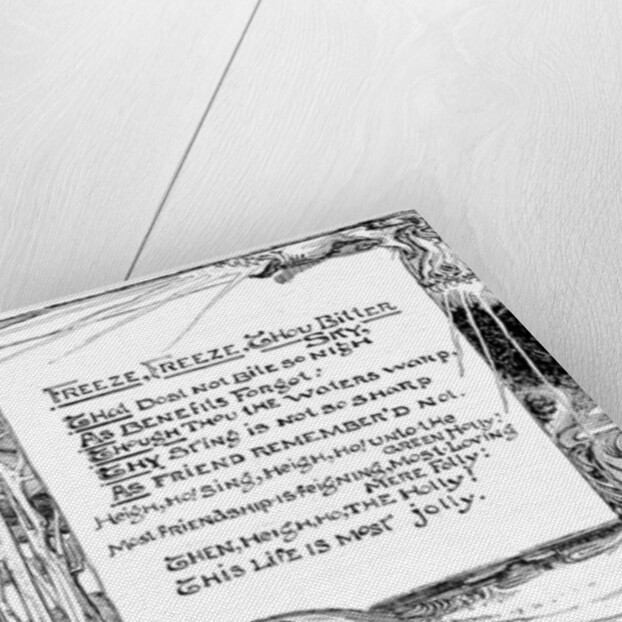 FREEZE, FREEZE, Thou Bitter
SKY,
That Dost Not Bite so nigh
As Benefits Forgot:
Though Thou the Waters warp,
Thy Sting is not so sharp
As FRIEND REMEMBER'D Not.
Heigh, Ho! Sing, Heigh, Ho! unto the
GREEN Holly:
Most Friendship is feigning, Most Loving
MERE Folly:
THEN, Heigh, ho, THE Holly!
This Life is Most jolly.